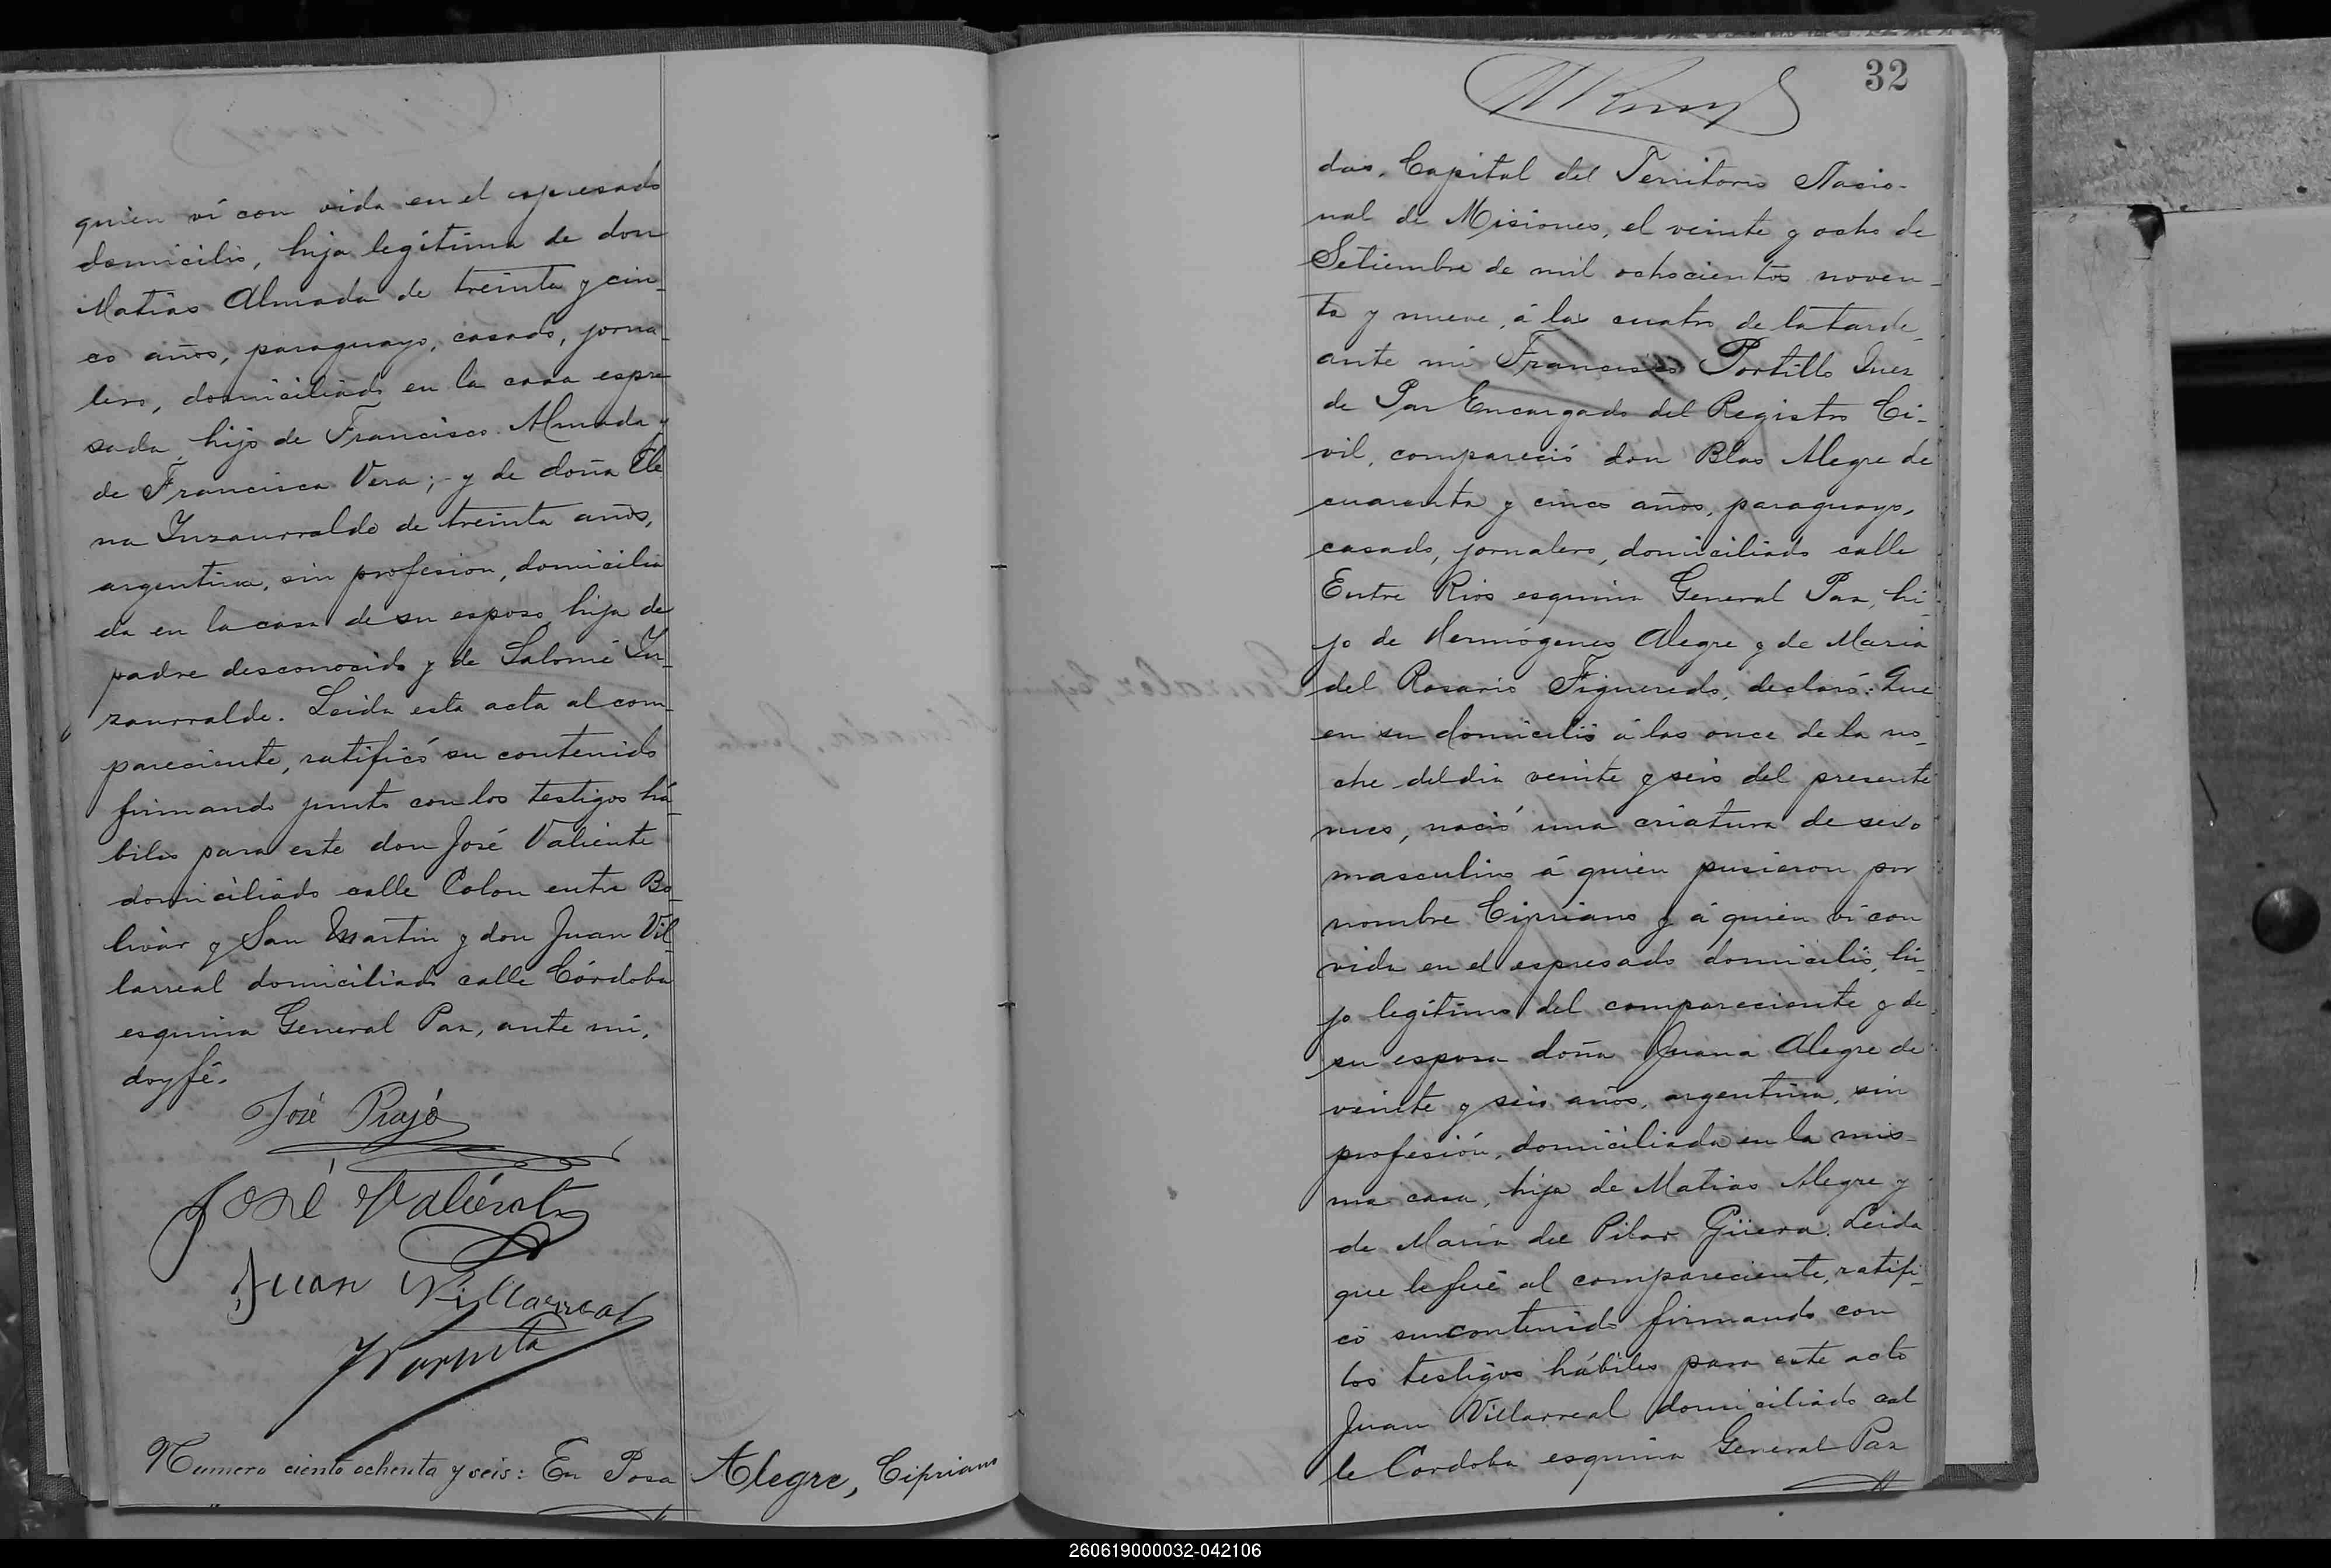 quien ví con vida en el espresado
domicilio, hija legítima de don
Matías Almada de treinta y cin-
co años, paraguayo, casado, jorna-
lero, domiciliado en la casa espre-
sada, hijo de Francisco Almada y
de Francisca Vera; y de doña Ele
na Inzaurralde de treinta años,
argentina, sin profesion, domicilia
da en la casa de su esposo, hija de
padre desconocido y de Salomé In-
zaurralde. Leida esta acta al com-
pareciente, ratificó su contenido
firmando junto con los testigos há-
biles para este don José Valiente
domiciliado calle Colon entre Bo-
livar y San Martin y don Juan Vil-
larreal domiciliado calle Córdoba
esquina General Paz, ante mi,
doy fé.
José
José Valiente
Juan Villarreal
Numero ciento ochenta y seis: En Posa
Alegre, Cipriano
32
das, Capital del Territorio Nacio-
nal de Misiones, el veinte y ocho de
Setiembre de mil ochocientos noven-
ta y nueve, á las cuatro de la tarde,
ante mi Francisco Portillo Juez
de Paz Encargado del Registro Ci-
vil, compareció don Blas Alegre de
cuarenta y cinco años, paraguayo,
casado, jornalero, domiciliado calle
Entre Rios esquina General Paz, hi-
jo de Hermógenes Alegre y de Maria
del Rosario Figueredo, declaró: Que
en su domicilio á las once de la no-
che del dia veinte y seis del presente
mes, nació una criatura de sexo
masculino á quien pusieron por
nombre Cipriano y á quien ví con
vida en el espresado domicilio, hi-
jo legítimo del compareciente y de
su esposa doña Juana Alegre de
veinte y seis años, argentina, sin
profesión, domiciliada en la mis-
ma casa, hija de Matias Alegre y
de María del Pilar Güera. Leida
que le fué al compareciente, ratifi-
có su contenido firmando con
los testigos hábiles para este acto
Juan Villarreal domiciliado cal
le Cordoba esquina General Paz
260619000032-042106